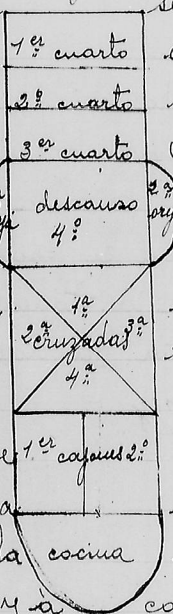 1er cuarto
2º cuarto
3er cuarto
descanso
4º
2ª
1ª
2ª cruzadas 3ª
4ª
1er cajones 2º
cocina